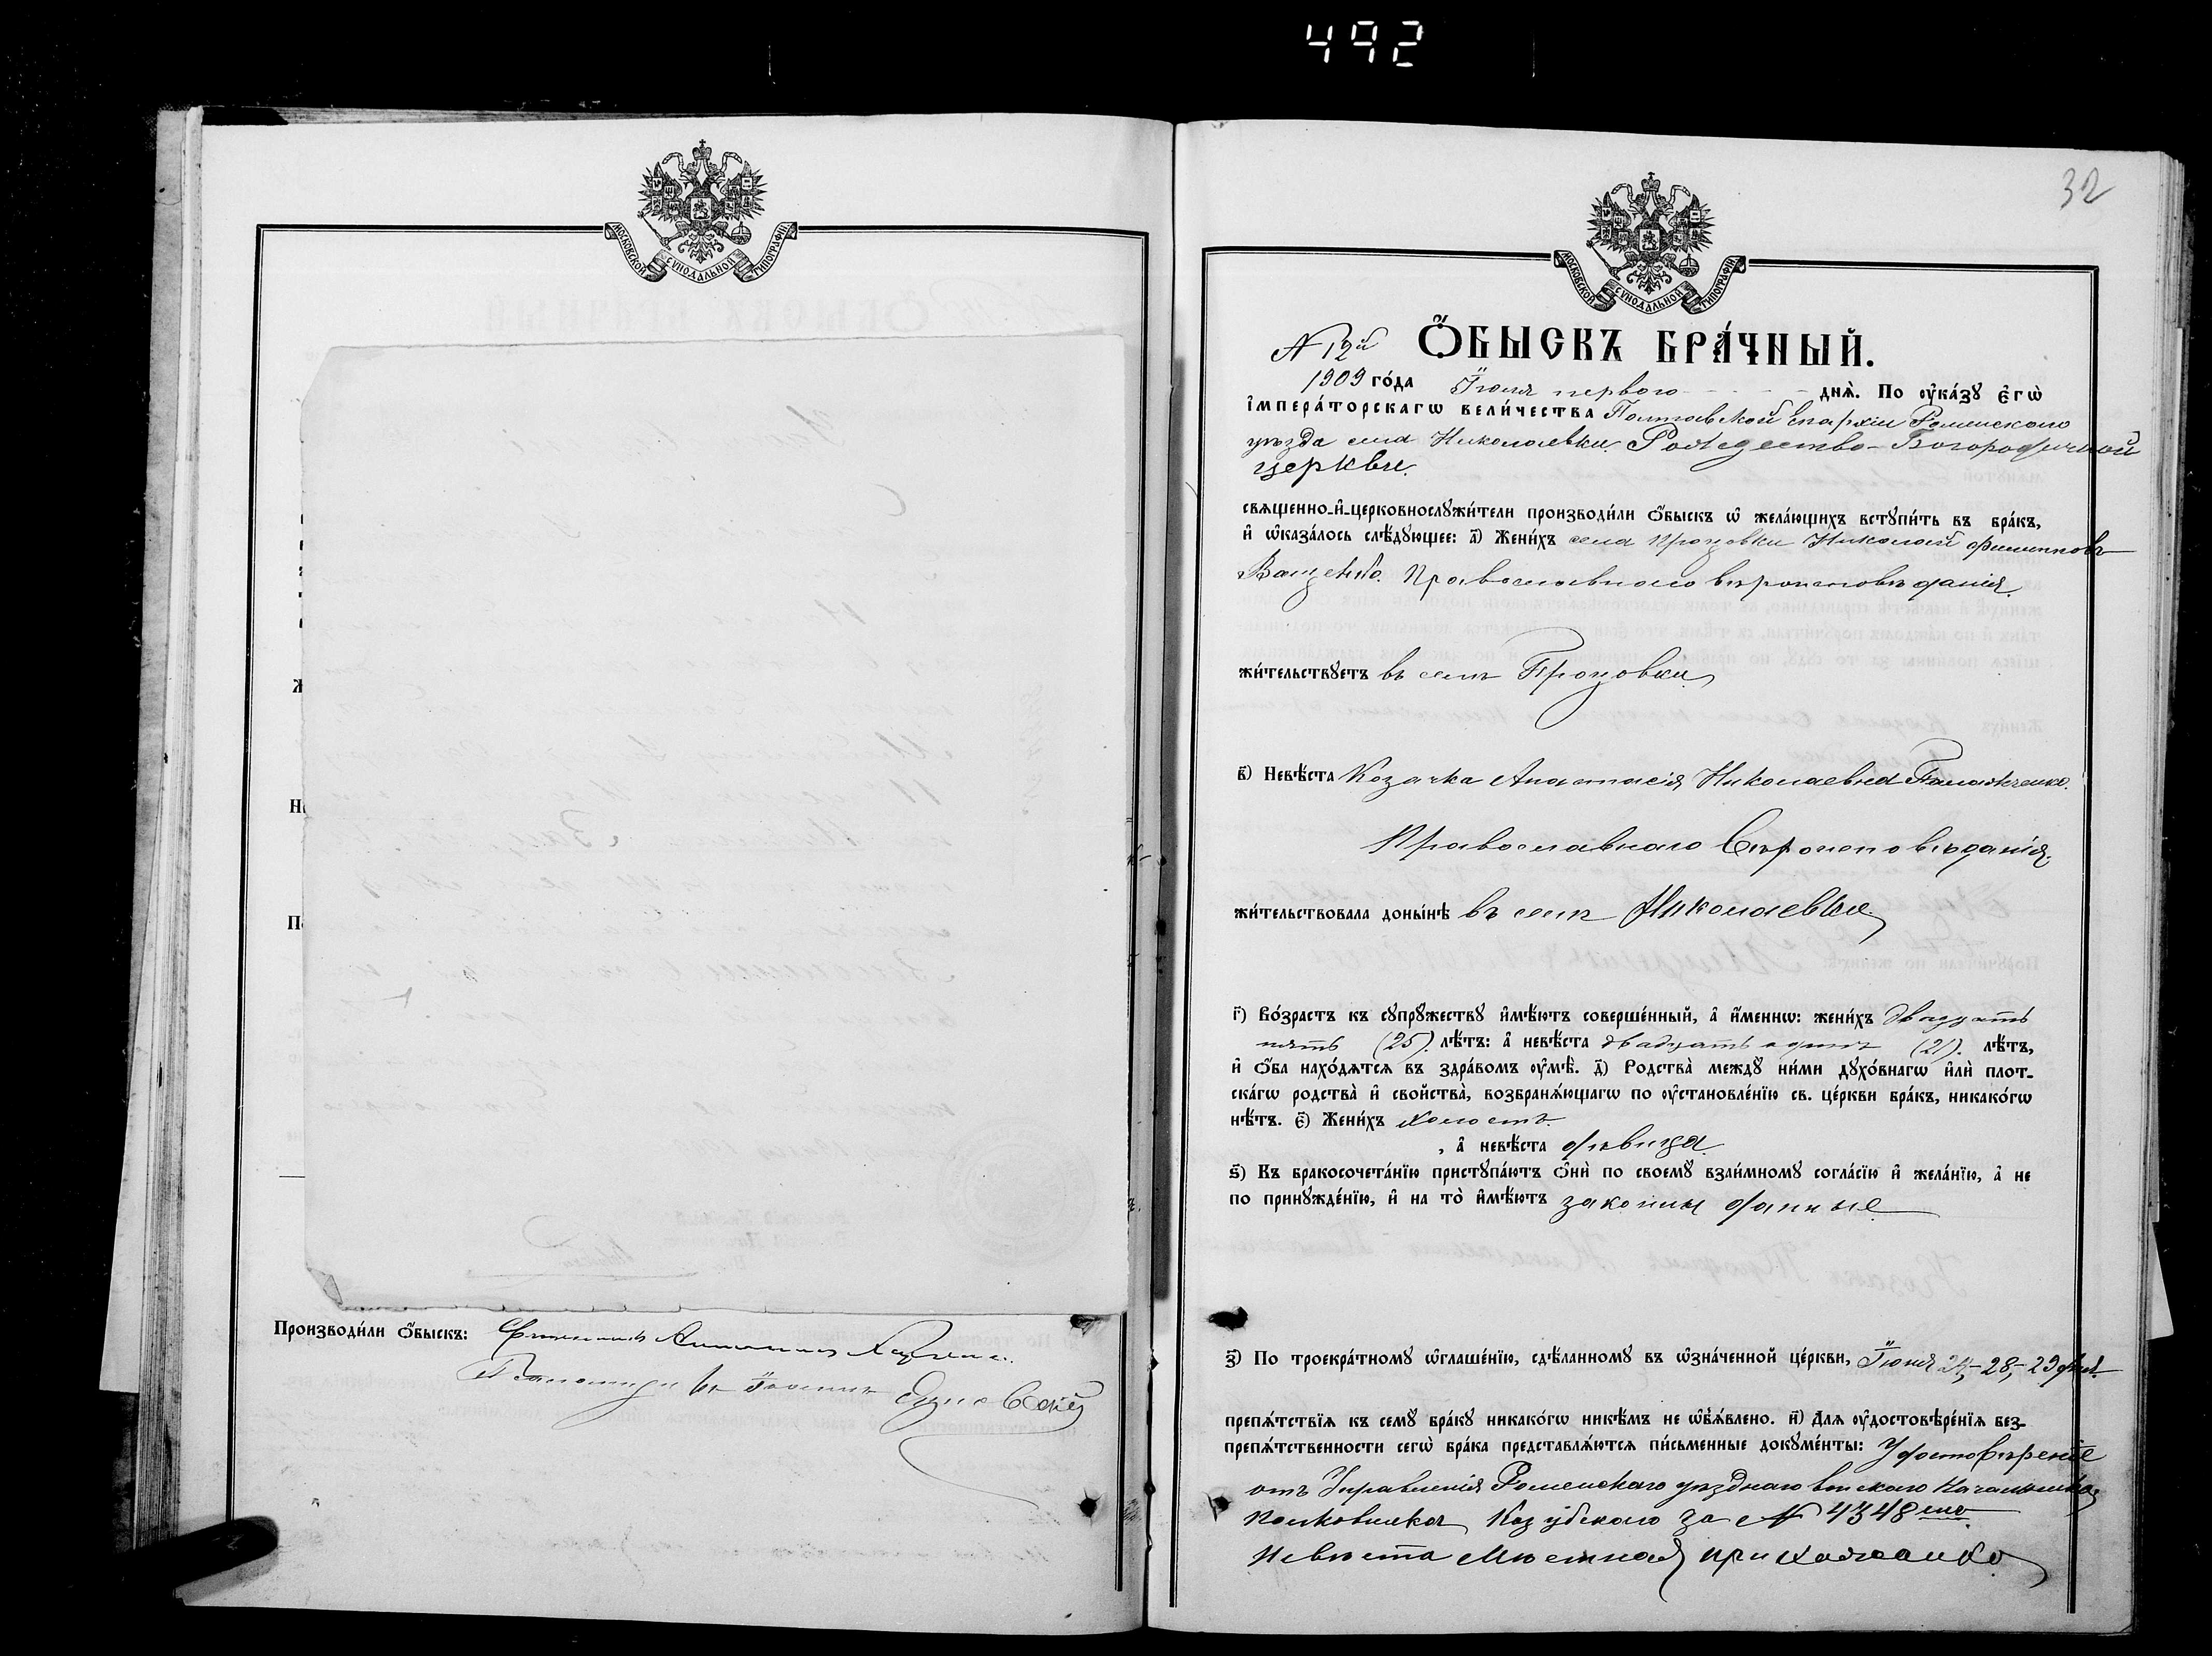 492
МОСКОВСКОЙ СУНОДАЛЬНОЙ ТИПОГРАФІИ
Производи́ли ѻ҆́быскъ: Священникъ
Псаломщикъ
32
МОСКОВСКОЙ СУНОДАЛЬНОЙ ТИПОГРАФІИ
N 12й Ѻ҆́БЫСКЪ БРА́ЧНЫЙ.
1909 го́да Іюля перваго днѧ̀. По ᲂу҆ка́зꙋ є҆гѡ̀
і҆мпера́торскагѡ вели́чества Полтавской Епархіи Роменскаго
уѣзда села Николаевки Рождество-Богородичной
церкви.
свѧщенно-и҆-церковнослꙋжи́тели производи́ли ѻ҆́быскъ ѡ҆ жела́ющихъ встꙋпи́ть въ бра́къ,
и҆ ѡ҆каза́лось слѣ́дꙋющее: а҃) Жени́хъ села Процовки Николай Филипповъ
Ващенко. Православнаго вѣроисповѣданія.
жи́тельствꙋетъ въ селѣ Процовки
в҃) Невѣ́ста Козачка Анастасія Николаевна
Православнаго вѣроисповѣданія.
жи́тельствовала доны́нѣ въ селѣ Николаевке
г҃) Во́зрастъ къ сꙋпрꙋ́жествꙋ и҆мѣ́ютъ соверше́нный, а҆ и҆́меннѡ: жени́хъ двадцать
пять (25). лѣ́тъ: а҆ невѣ́ста двадцать одинъ (21). лѣ́тъ,
и҆ ѻ҆́ба нахо́дѧтсѧ въ здра́вомъ ᲂу҆мѣ̀. д҃) Родства̀ междꙋ ни́ми дꙋхо́внагѡ и҆лѝ плот-
ска́гѡ родства̀ и҆ свойства̀, возбранѧ́ющагѡ по ᲂу҆становле́нїю св. це́ркви бра́къ, никако́гѡ
нѣ́тъ. є҃) Жени́хъ холостъ.
, а҆ невѣ́ста дѣвица
ѕ҃) Къ бракосочета́нїю пристꙋпа́ютъ ѻ҆нѝ по своемꙋ̀ взаи́мномꙋ согла́сїю и҆ жела́нїю, а҆ не
по принꙋжде́нїю, и҆ на то̀ и҆мѣ́ютъ законны данные
з҃) По троекра́тномꙋ ѡ҆глаше́нїю, сдѣ́ланномꙋ въ ѡ҆зна́ченной це́ркви, Іюня 28, 29 дня.
препѧ́тствїѧ къ семꙋ̀ бра́кꙋ никако́гѡ никѣ́мъ не ѡ҆б̾ѧ́влено. и҃) Длѧ ᲂу҆достовѣре́нїѧ без-
препѧ́тственности сегѡ̀ бра́ка представлѧ́ютсѧ пи́сьменные докꙋме́нты: Удостовѣреніе
отъ Управленія Роменскаго уѣзднаго воискаго Начальника
полковника за N 4348
невѣста мѣстная прихожанка.